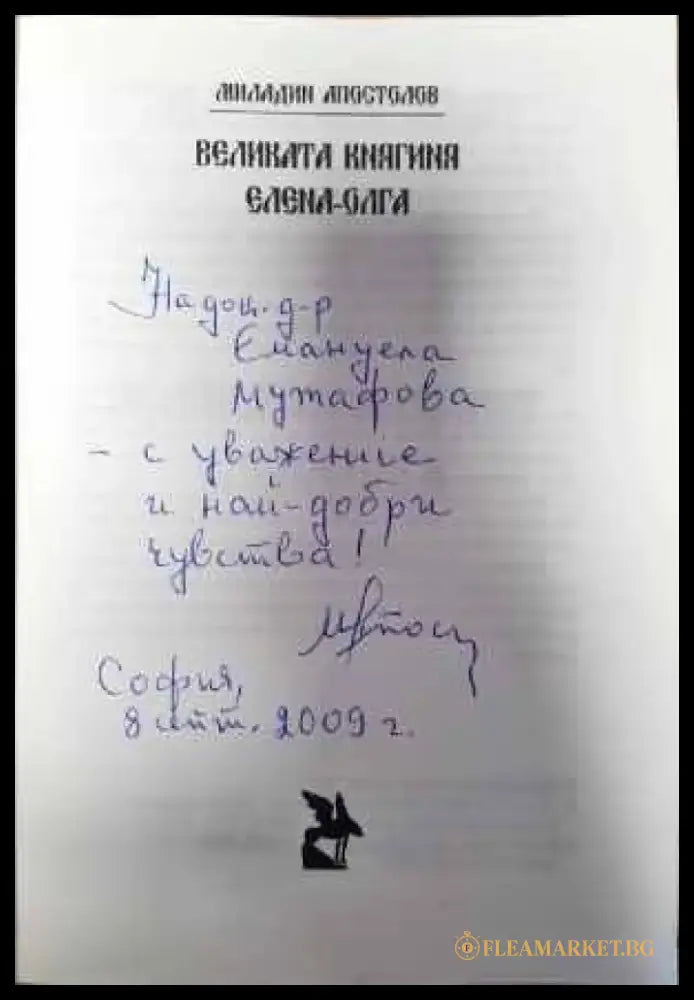 МИЛАДИН АПОСТОЛОВ
ВЕЛИКАТА КНЯГИНЯ
ЕЛЕНА-ОЛГА
На доц. д-р
Емануела
Мутафова
- с уважение
и най-добри
чувства!
София,
8 септ. 2009 г.
FLEAMARKET.BG